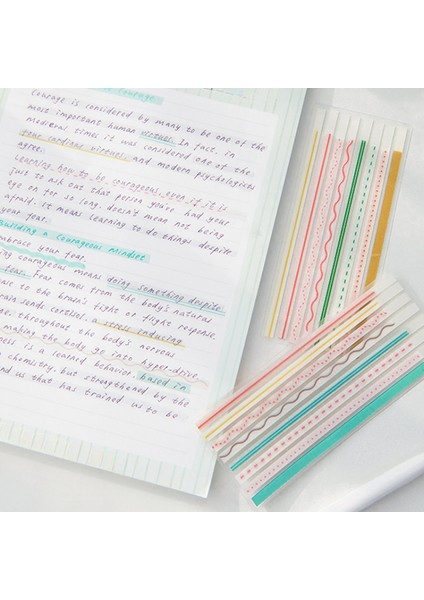 Courage
Courage is considered by many to be one of the
most important human virtues. In fact, in
medieval times it was considered one of the
four cardinal virtues, and modern psychologists
agree.
Learning how to be courageous, even if it is
just to ask out that person you've had your
eye on for so long, doesn't mean not being
afraid. It means learning to do things despite
your fear.
Building a Courageous Mindset
embrace your fear
being courageous means doing something despite
fear. Fear comes from the body's natural
to the brain's fight or flight response.
brain sends cortisol, a stress inducing
throughout the body's nervous
making the body go into hyper-drive.
is a learned behavior, based in
chemistry, but strengthened by the
us that has trained us to be